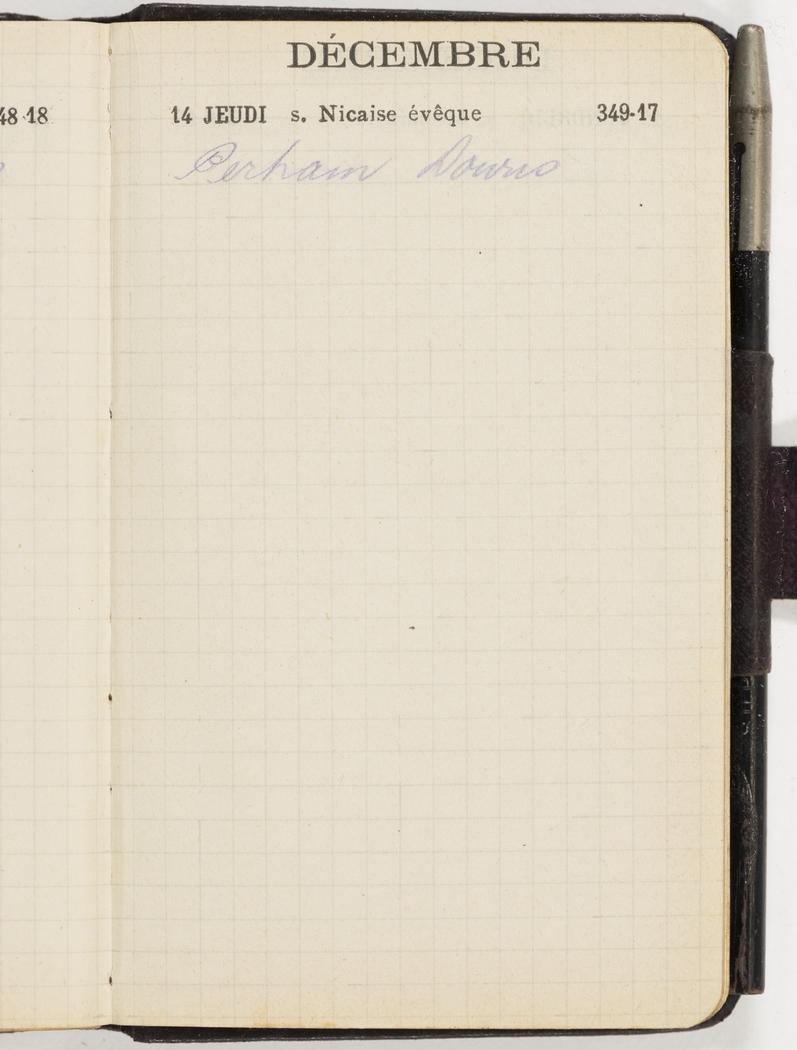 48-18
DÉCEMBRE
14 JEUDI s. Nicaise évêque 349-17
Perham Downs